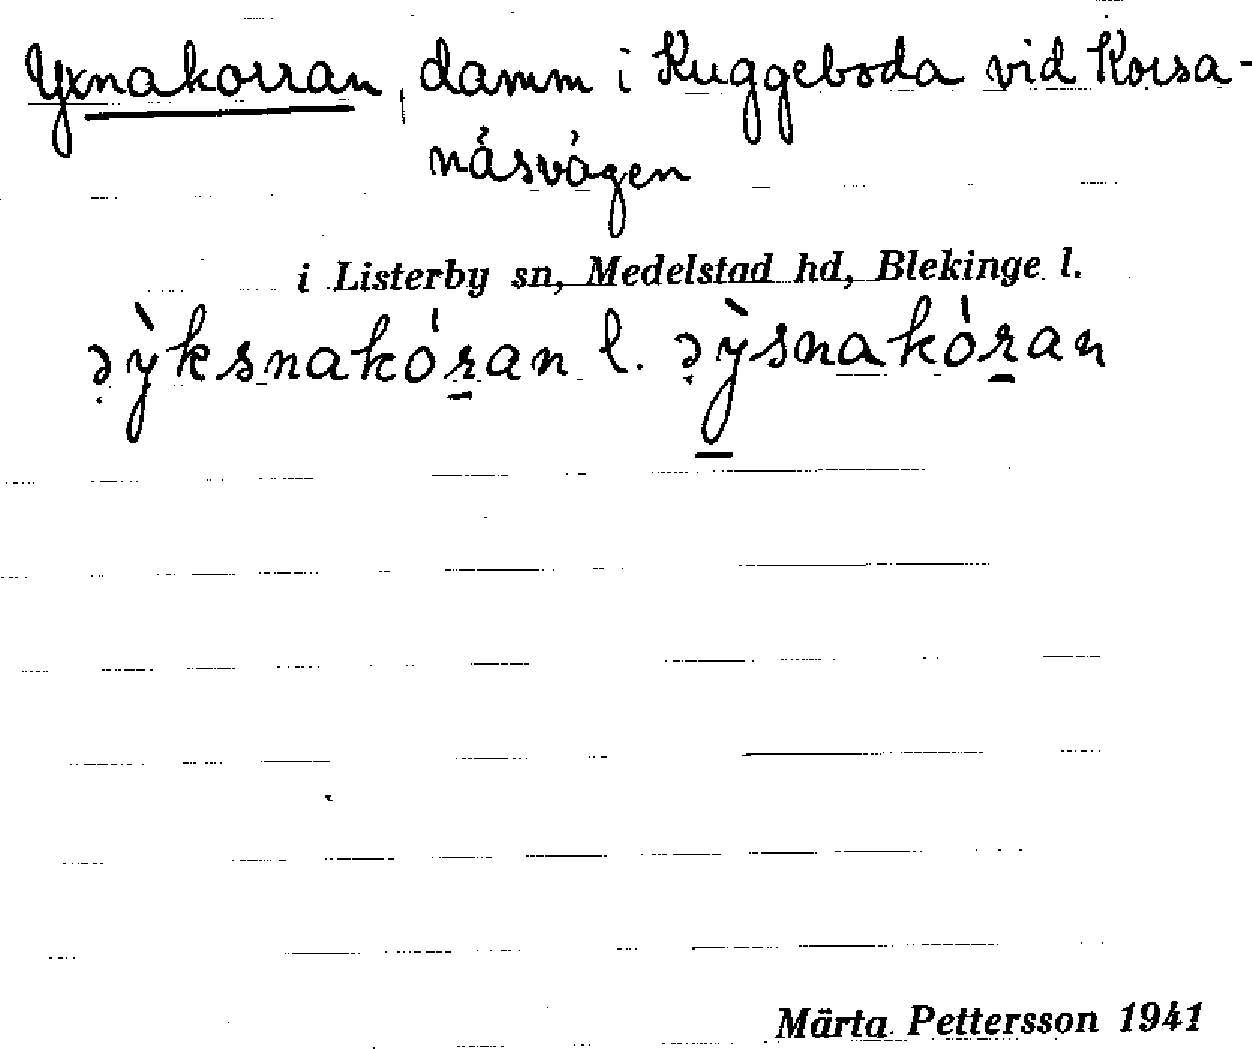 Yxnakorran, damm i Kuggeboda vid Korsa-
näsvägen
i Listerby sn, Medelstad hd, Blekinge l.
əỳksnakóran l. əỳsnakóran
Märta Pettersson 1941